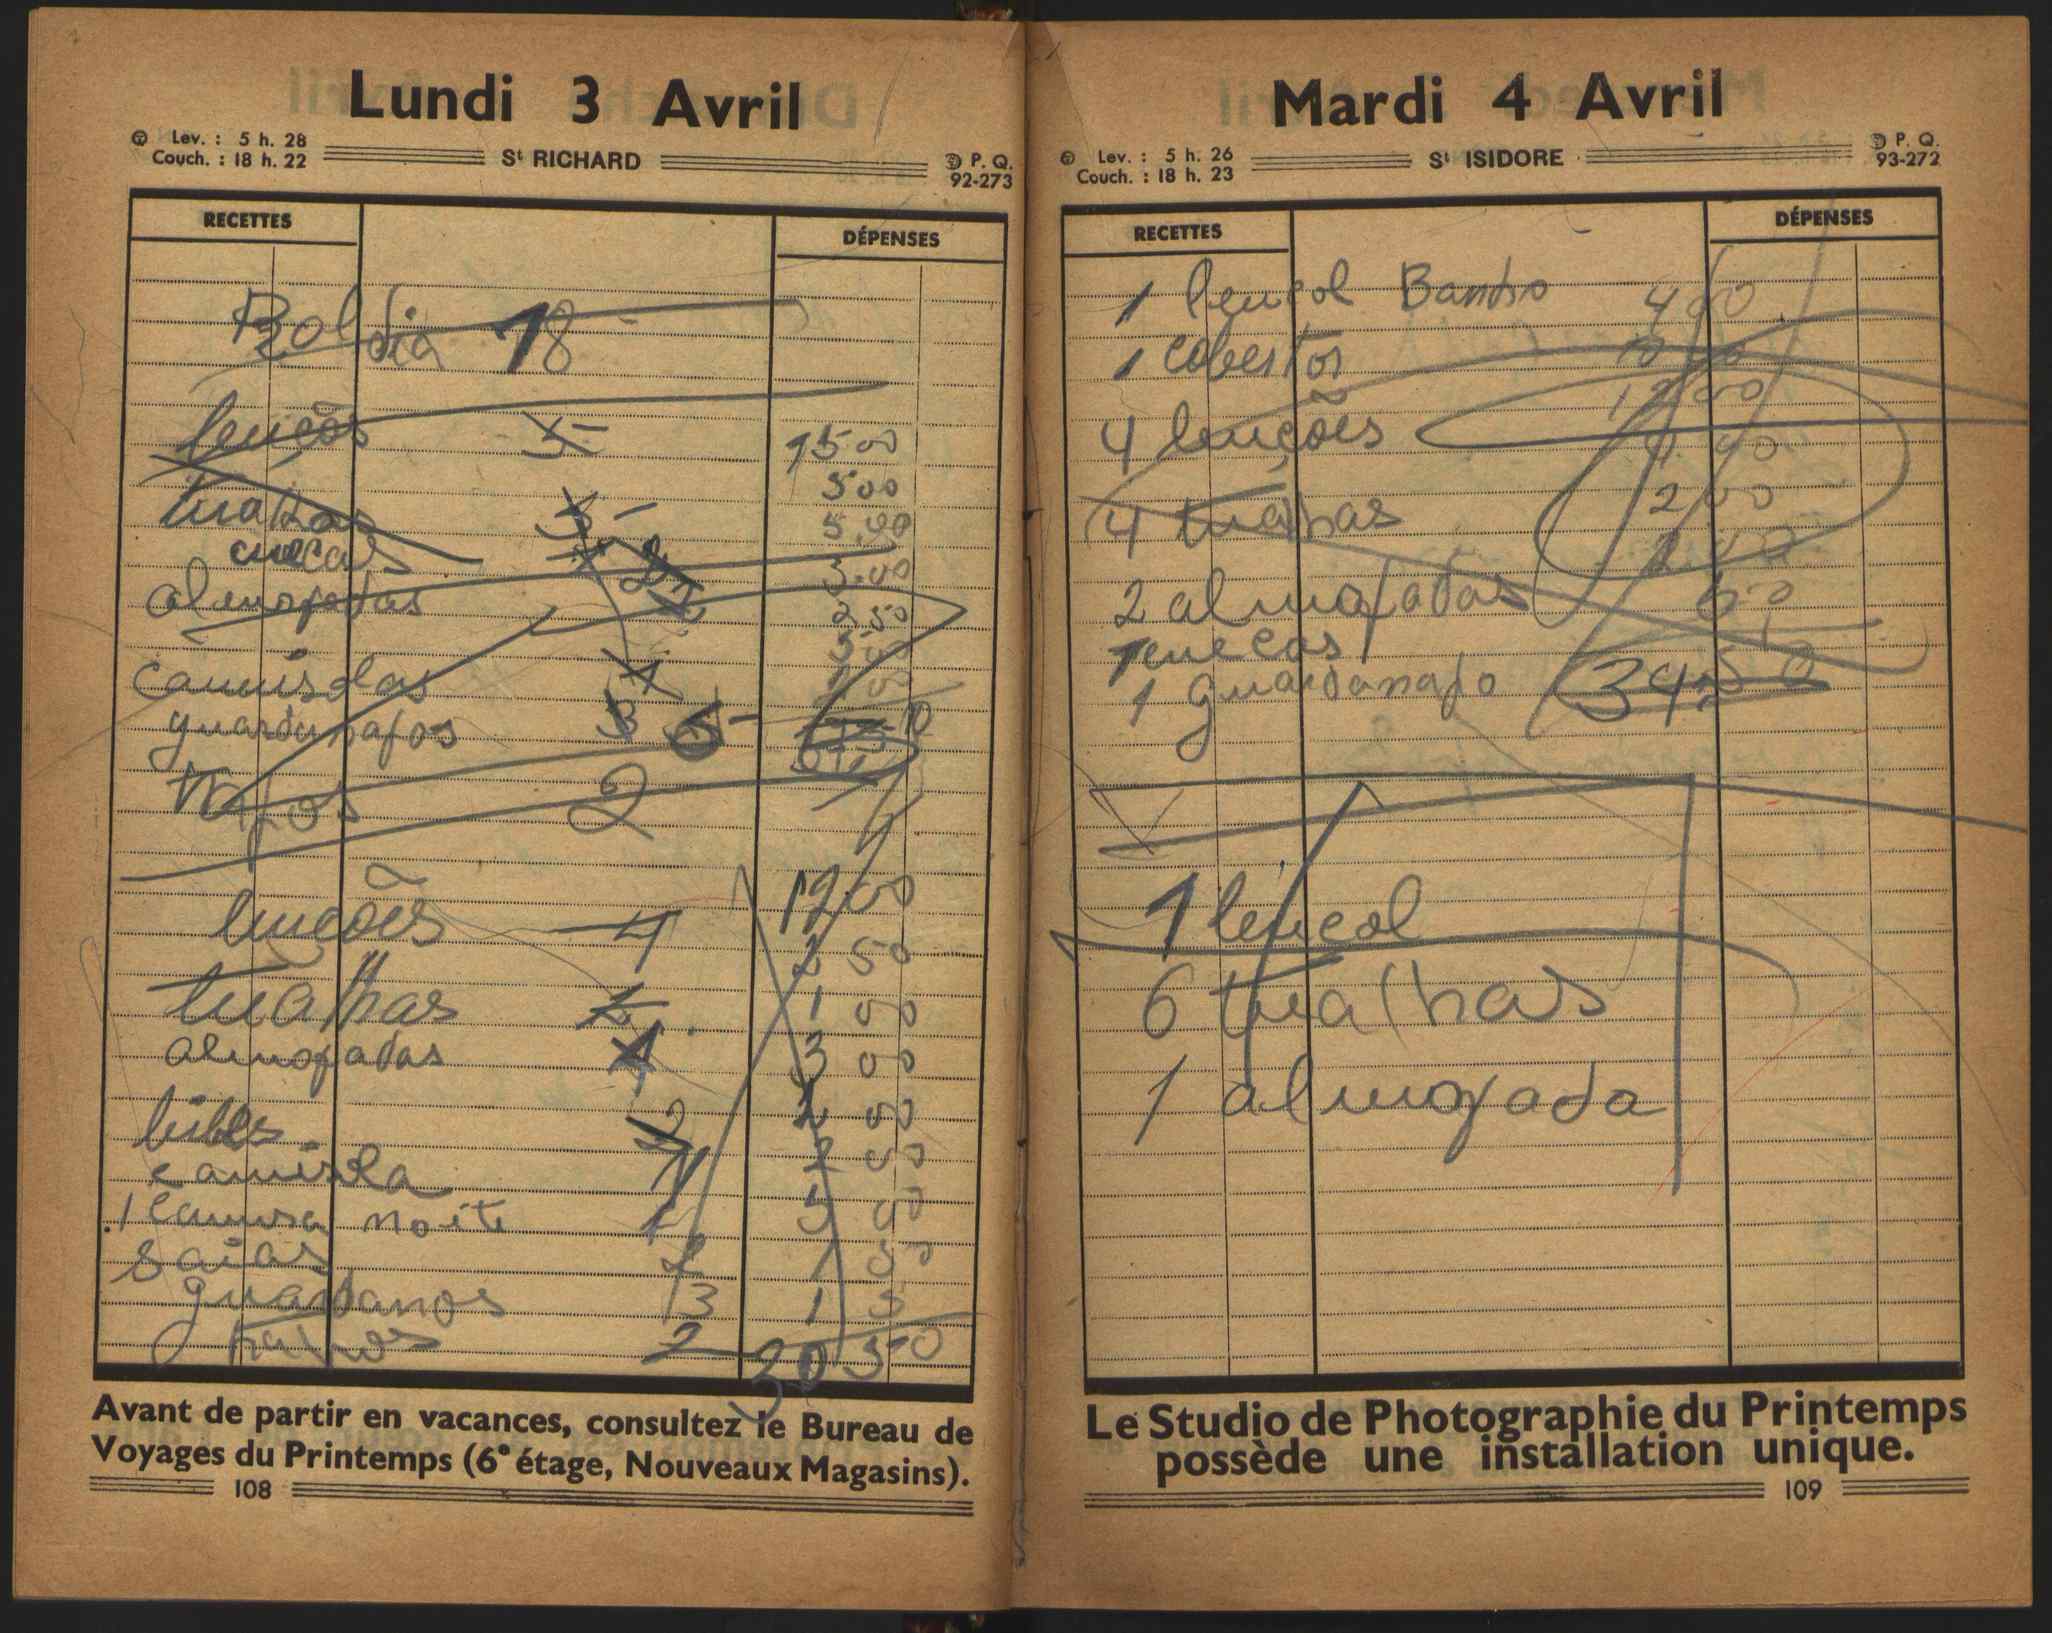 Lundi 3 Avril
Lev. : 5 h. 28
Couch. : 18 h. 22
St RICHARD
P. Q.
92-273
RECETTES
DÉPENSES
Rol dia 18
lençōs 5 15.00
tualhas 5 5 00
cuecas 2 5.00
almofadas 3.00
2.50
camisolas
guardanapos 3
2
lençōes 4 12 00
tualhas 2 50
almofadas 4 1 00
bibes 2 3 00
camisola 1 2 00
1 camisa noite 1 2 00
saias 2 5 00
guardanos 3 1 50
2 1 5
30.50
Avant de partir en vacances, consultez le Bureau de
Voyages du Printemps (6e étage, Nouveaux Magasins).
108
Mardi 4 Avril
Lev. : 5 h. 26
Couch. : 18 h. 23
St ISIDORE
P. Q.
93-272
RECETTES
DÉPENSES
1 lençol Banho 4 00
1 cobertor
12 00
4 lençōes
4 tualhas 2 00
2 almofadas 50
1 cuecas
1 guardanapo 34,50
1 lençol
6 tualhas
1 almofada
Le Studio de Photographie du Printemps
possède une installation unique.
109